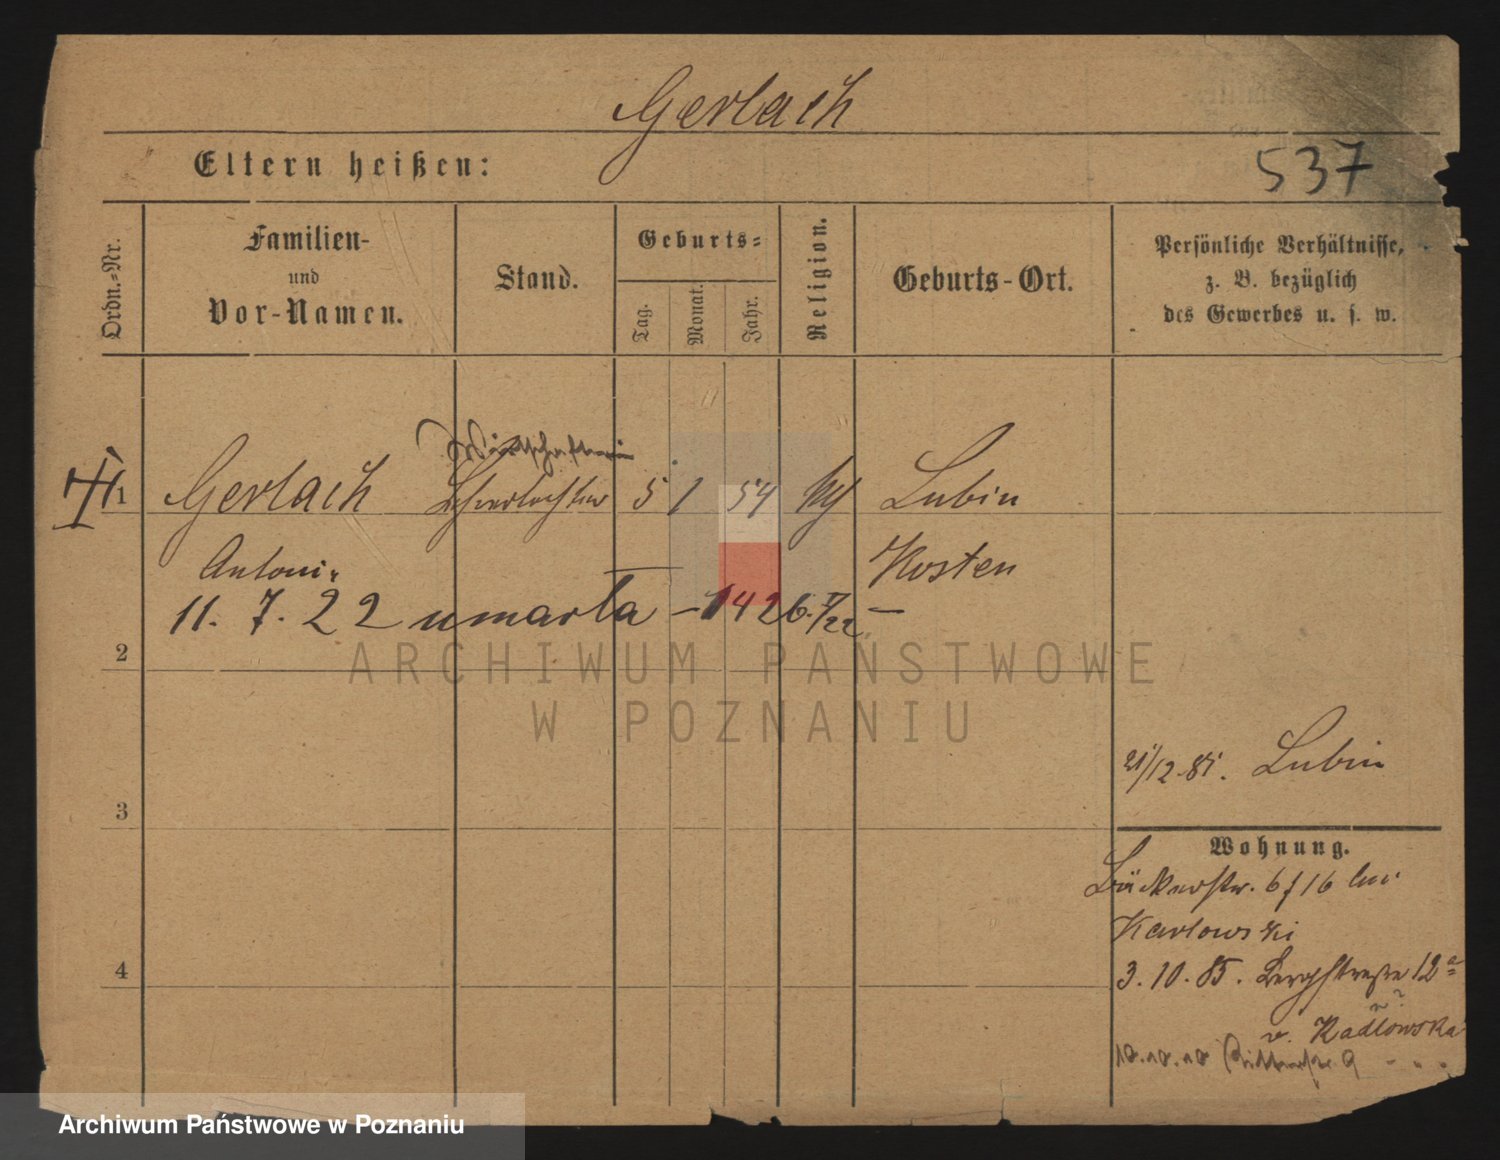 Gerlach
Eltern heißen:
537
Ordn.-Nr.
Familien-
und
Vor-Namen.
Stand.
Geburts-
Tag.
Monat.
Jahr.
Religion.
Geburts-Ort.
Persönliche Verhältnisse,
z. B. bezüglich
des Gewerbes u. s. w.
Wirtschafterin
1 Gerlach 5 1 54 Lubin
Antoni. Kosten
11. 7. 22 umarła – 1426. V/22 –
2
ARCHIWUM PAŃSTWOWE
W POZNANIU
21/12.85. Lubin
3
Wohnung.
Bäckerstr. 6 f 16 bei
Karlowski
4
3.10.85. Bergstraße 12a
v. Radlowska
10.10.10 Ritterstr 9 - „ „
Archiwum Państwowe w Poznaniu